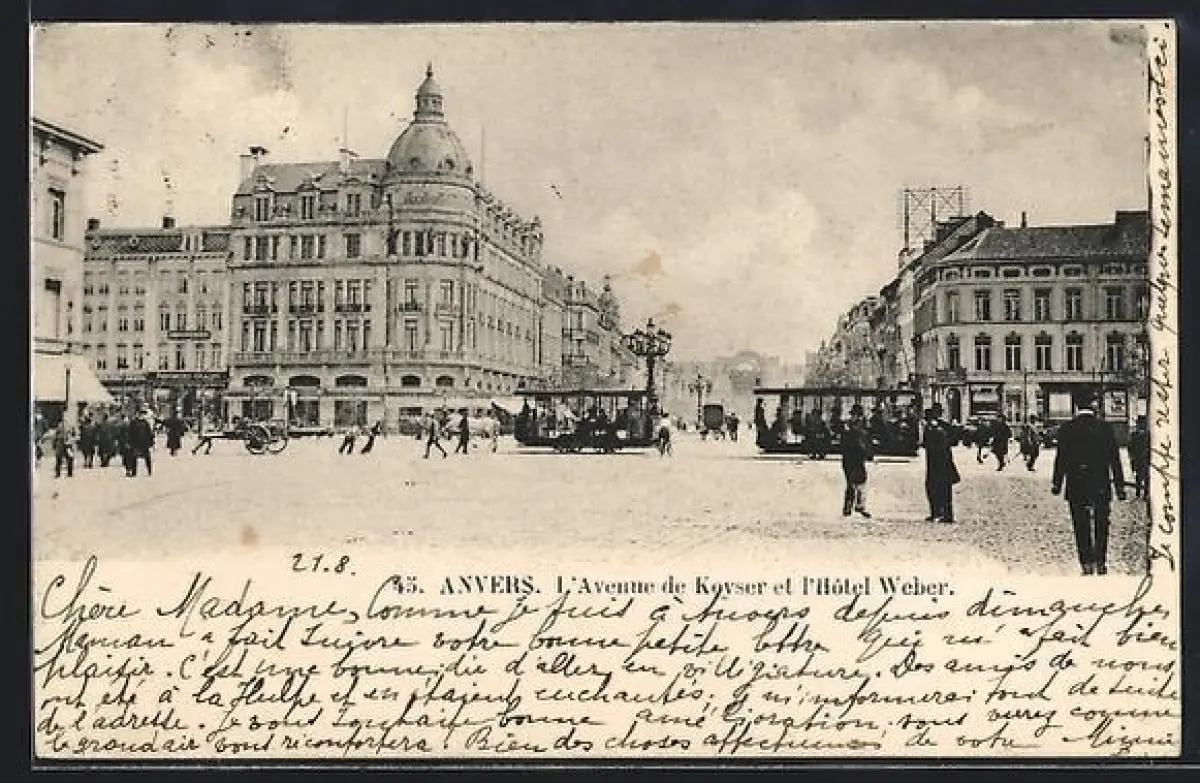 21.8.
45. ANVERS. L'Avenue de Keyser et l'Hôtel Weber.
Chère Madame, Comme je suis à Anvers depuis dimanche,
Maman a fait suivre votre bonne petite lettre qui m'a fait bien
plaisir. C'est une bonne idie d'aller en villégiature. Des amis de nous
ont été à la Hulpe et en étaient enchantés; je m'informerai tout de suite
de l'adresse. Je vous souhaite bonne amélioration, vous verrez comme
le grand air vous réconfortera! Bien des choses affectueuses de votre
Je compte rester quelque temps ici.